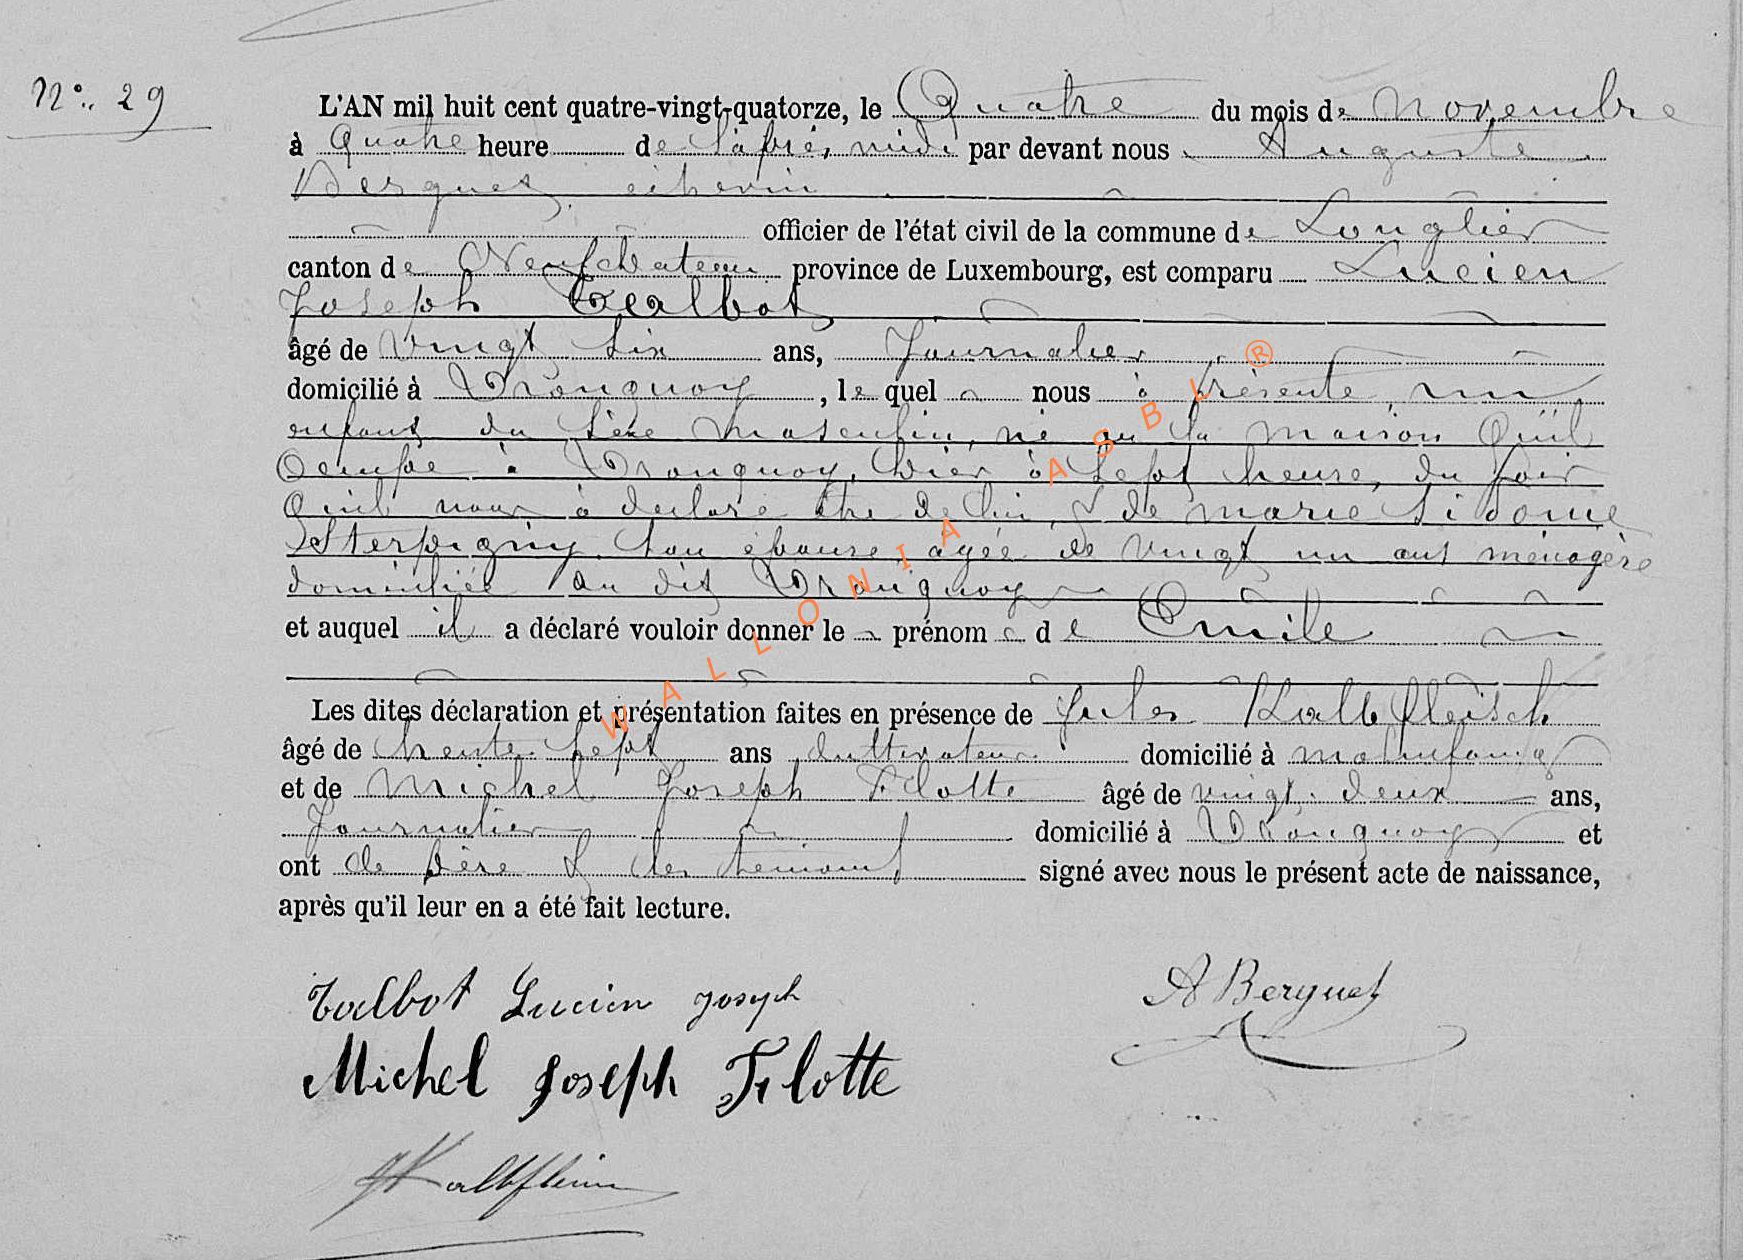 N° 29
L'AN mil huit cent quatre-vingt-quatorze, le Quatre du mois de Novembre
à Quatre heure de l'après midi par devant nous Auguste
Berguet, échevin
officier de l'état civil de la commune de Longlier
canton de Neufchateau province de Luxembourg, est comparu Lucien
Joseph Talbot
âgé de vingt six ans, Journalier
domicilié à Bronquoy, le quel nous à présenté un
enfant du sèxe masculin, né en la maison Qu'il
Occupe à Bronquoy, hier à sept heure, du soir
Qu'il nous à déclaré être de lui, & de marie Sidonie
Sterpigny son épouse, agée de vingt un ans ménagère
domiciliée au dit Bronquoy
et auquel il a déclaré vouloir donner le prénom de Emile
Les dites déclaration et présentation faites en présence de Jules Kalbfleisch
âgé de trente sept ans cultivateur domicilié à
et de Michel Joseph Flotte âgé de vingt deux ans,
Journalier domicilié à Bronquoy et
ont le père & les temoins signé avec nous le présent acte de naissance,
après qu'il leur en a été fait lecture.
Talbot Lucien joseph
A Berguet
Michel Joseph Flotte
WALLONIA ASBL ®